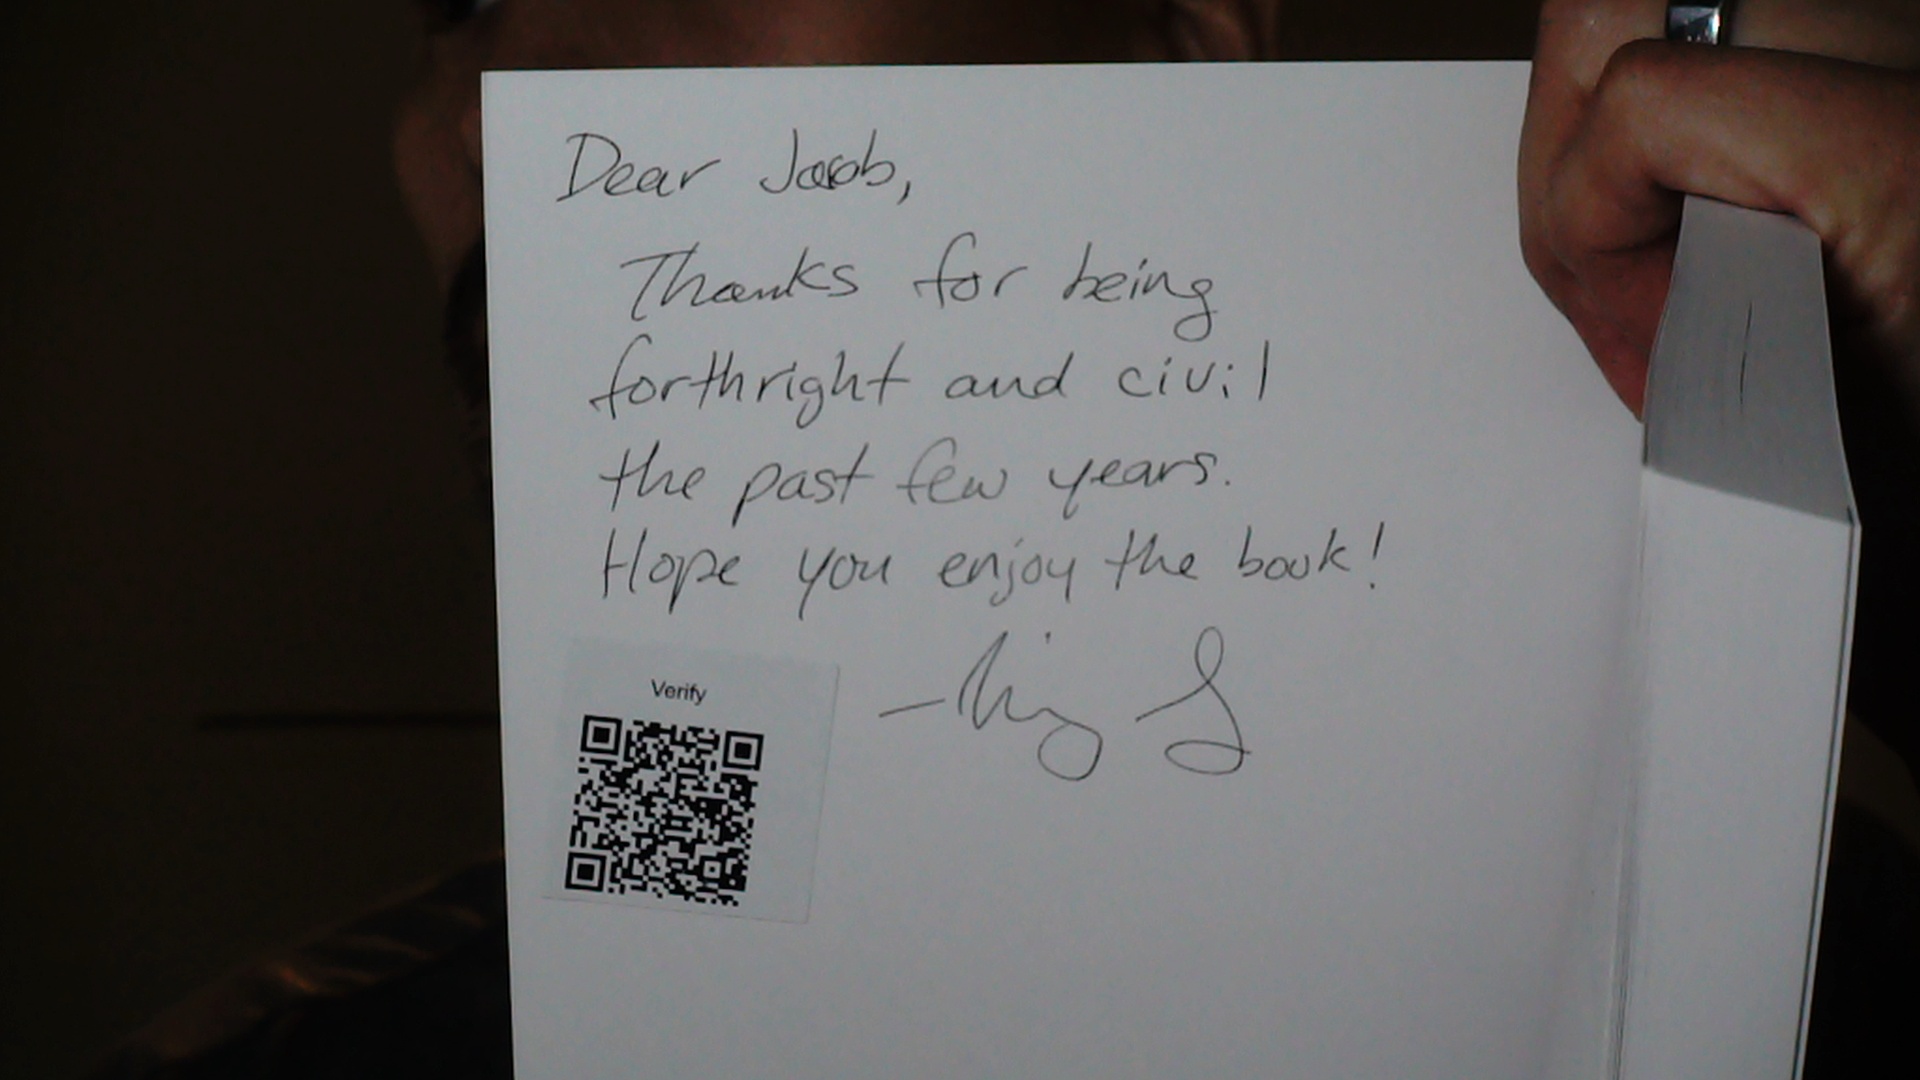 Dear Jacob,
Thanks for being
forthright and civil
the past few years.
Hope you enjoy the book!
Verify